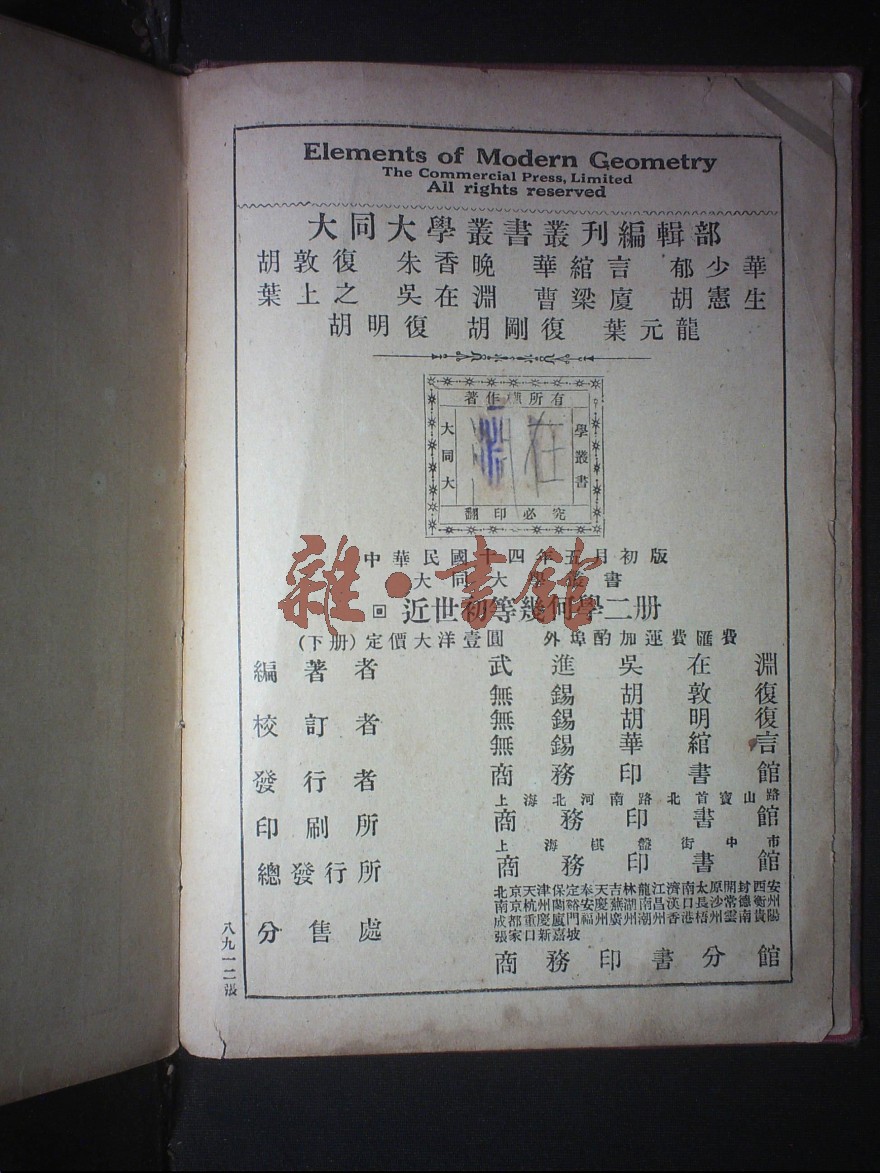 Elements of Modern Geometry
The Commercial Press, Limited
All rights reserved
大同大學叢書叢刊編輯部
胡敦復 朱香晚 華綰言 郁少華
葉上之 吳在淵 曹梁廈 胡憲生
胡明復 胡剛復 葉元龍
著作權所有
大同大
學叢書
在淵
翻印必究
中華民國十四年五月初版
大同大學叢書
近世初等幾何學二册
(下册)定價大洋壹圓 外埠酌加運費匯費
編著者 武進吳在淵
無錫胡敦復
校訂者 無錫胡明復
無錫華綰言
發行者 商務印書館
上海北河南路北首寶山路
印刷所 商務印書館
上海棋盤街中市
總發行所 商務印書館
北京天津保定奉天吉林龍江濟南太原開封西安
南京杭州蘭谿安慶蕪湖南昌漢口長沙常德衡州
成都重慶廈門福州廣州潮州香港梧州雲南貴陽
張家口新嘉坡
分售處
商務印書分館
八九一二張
雜·書館